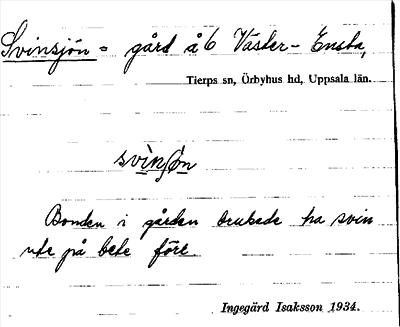 Svinsjön = gård å 6 Väster-Ensta,
Tierps sn, Örbyhus hd, Uppsala län.
Bonden i gården brukade ha svin
ute på bete före
Ingegärd Isaksson 1934.